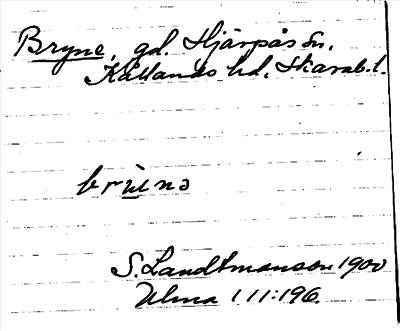 Bryne, gd. Hjärpås sn.
Kållands hd. Skarab.l.
bryüna
S. Landtmanson 1900
Ulma 111:196.